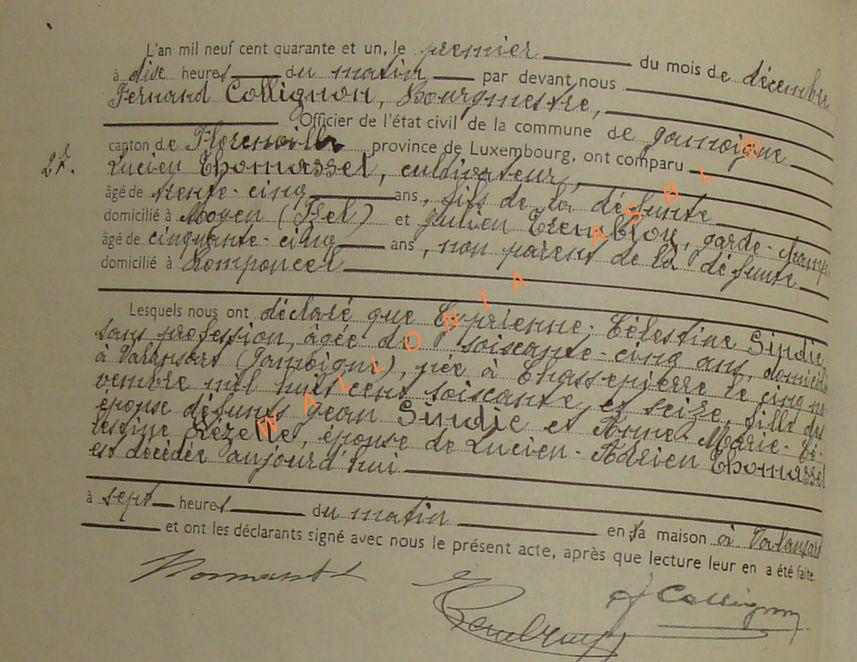 L'an mil neuf cent quarante et un, le premier du mois de décembre
à dix heures du matin par devant nous
Fernand Collignon, Bourgmestre,
Officier de l'état civil de la commune de Jamoigne
canton de Florenville province de Luxembourg, ont comparu
Lucien Thomasset, cultivateur,
âgé de trente-cinq ans, fils de la défunte
domicilié à Moyen (Izel) et Julien Trembloy, garde-champ
âgé de cinquante-cinq ans, non parent de la défunte
domicilié à Romponcel
Lesquels nous ont déclaré que Cyprienne-Célestine Sindic
sans profession, âgée de soixante-cinq ans, domicilié
à Valansart (Jamoigne), née à Chassepierre le cinq no
vembre mil huit cent soixante et seize, fille des
époux défunts Jean Sindic et Anne-Marie-Cé
lestine Rézette, épouse de Lucien-Adrien Thomasset
est décédée aujourd'hui
à sept heures du matin en sa maison à Valansart
et ont les déclarants signé avec nous le présent acte, après que lecture leur en a été faite.
F Collignon
WALLONIA ASBL ©